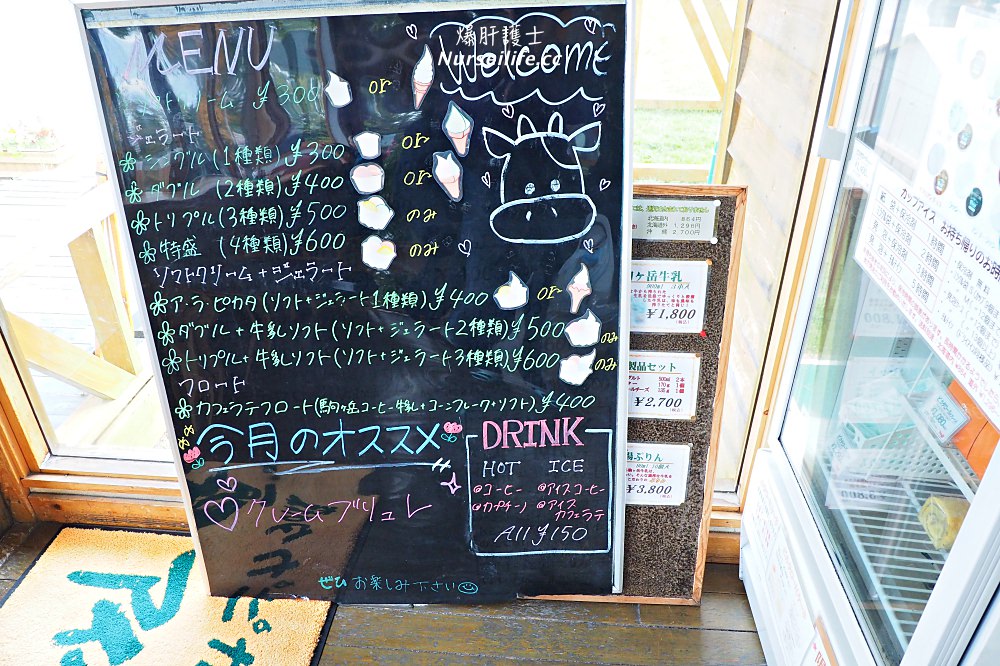 爆肝護士
Nurseilife.cc
MENU
Welcome
ソフトクリーム ¥300 or
ジェラート
シングル (1種類) ¥300 or
ダブル (2種類) ¥400 or
トリプル (3種類) ¥500 のみ
特盛 (4種類) ¥600 のみ
ソフトクリーム+ジェラート
ア・ラ・ピカタ (ソフト+ジェラート1種類) ¥400 or
ダブル+牛乳ソフト (ソフト+ジェラート2種類) ¥500 のみ
トリプル+牛乳ソフト (ソフト+ジェラート3種類) ¥600 のみ
フロート
カフェラテフロート (駒ヶ岳コーヒー牛乳+コーンフレーク+ソフト) ¥400
今月のオススメ
クレームブリュレ
ぜひお楽しみ下さい
DRINK
HOT ICE
@コーヒー @アイスコーヒー
@カプチーノ @アイスカフェラテ
All ¥150
北海道内 864円
北海道外 1,296円
沖縄 2,700円
ヶ岳牛乳
¥1,800
(税込)
製品セット
500ml 2本
170g 1個
¥2,700
(税込)
ぷりん
¥3,800
(税込)
カップアイス
お持ち帰りのお時